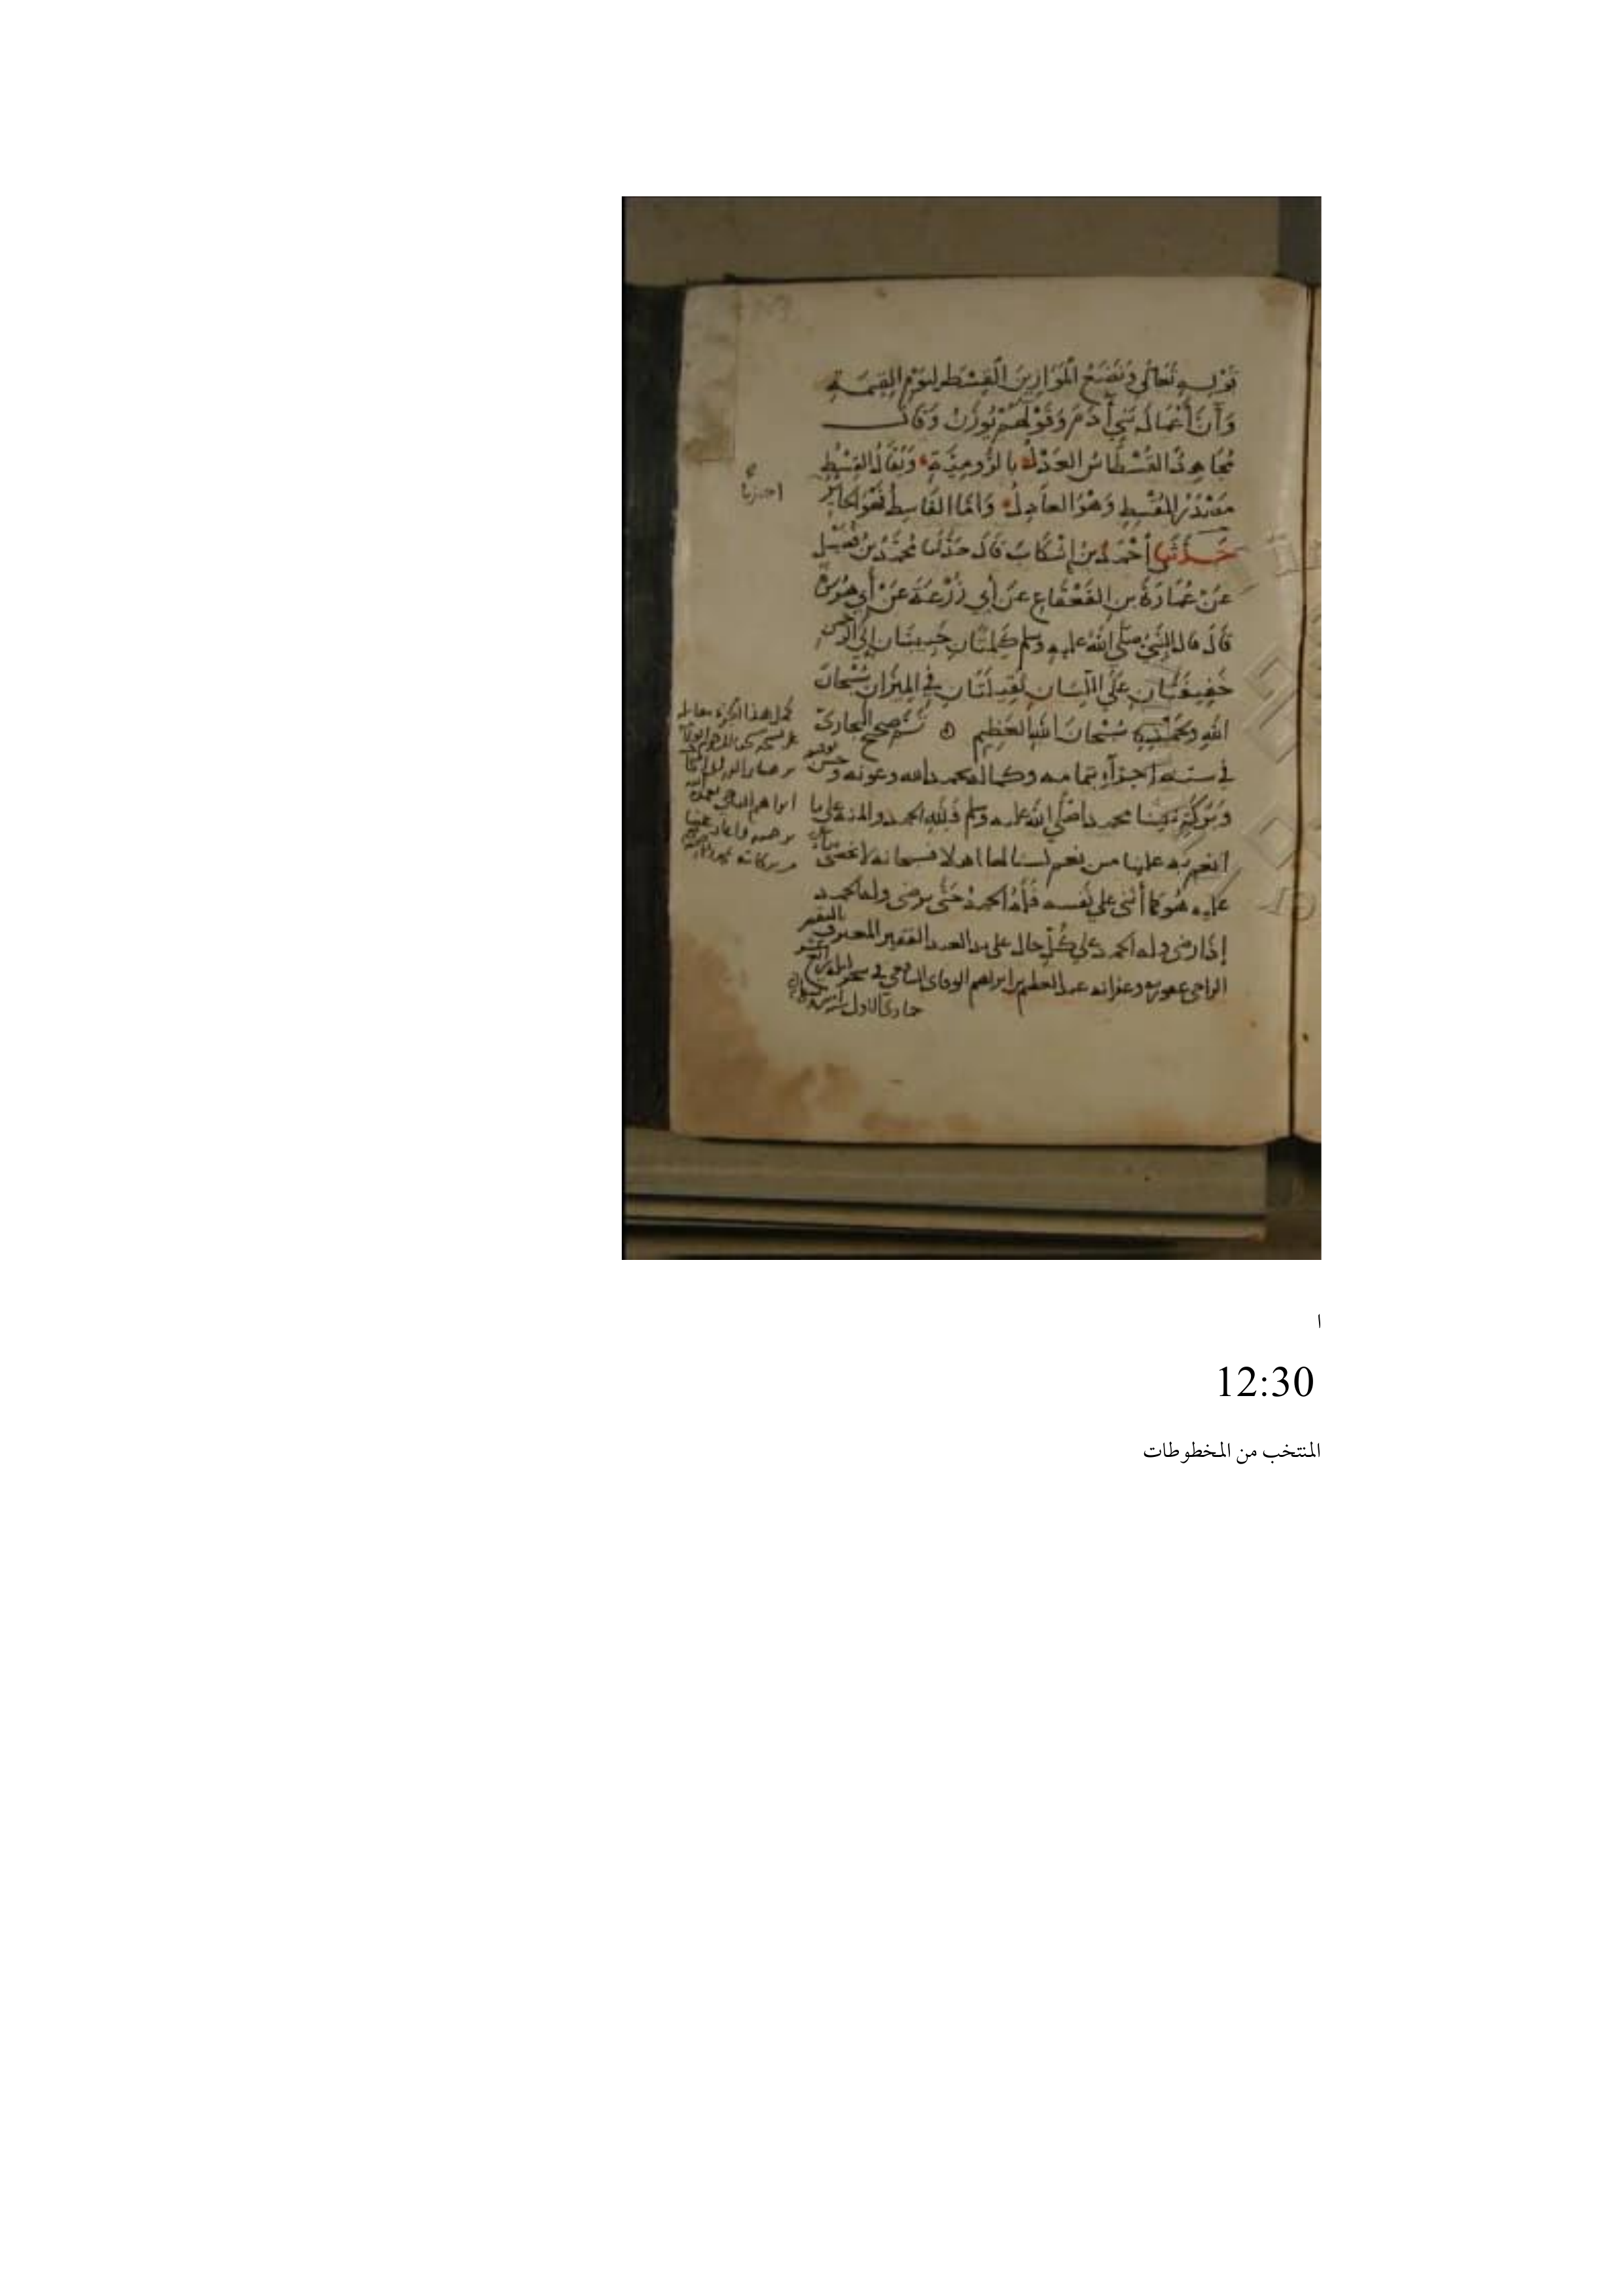 قوله تعالى ونضع الموازين القسط ليوم القيمة
وأن أعمال بني آدم وقولهم يوزن وقال
مجاهد القسطاس العدل بالرومية ويقال القسط
مصدر المقسط وهو العادل وأما القاسط فهو الجائر
حدثنا أحمد بن إشكاب قال حدثنا محمد بن فضيل
عن عمارة بن القعقاع عن أبي زرعة عن أبي هريرة
قال قال النبي صلى الله عليه وسلم كلمتان حبيبتان إلى الرحمن
خفيفتان على اللسان ثقيلتان في الميزان سبحان
الله وبحمده سبحان الله العظيم تم صحيح البخاري
في ستة أجزاء بتمامه وكماله بحمد الله وعونه وحسن توفيقه
وبركة نبينا محمد صلى الله عليه وسلم فلله الحمد والمنة على ما
أنعم به علينا من نعم لسنا لها أهلا فسبحانه لا نحصي ثناء
عليه هو كما أثنى على نفسه فله الحمد حتى يرضى وله الحمد
إذا رضي وله الحمد على كل حال على يد العبد الفقير المعترف بالتقصير
الراجي عفو ربه وغفرانه عبد العظيم بن ابراهيم الوفاي الشافعي في
جمادى الاول
كمل هذا الجزء مقابلة
ا
12:30
المنتخب من المخطوطات